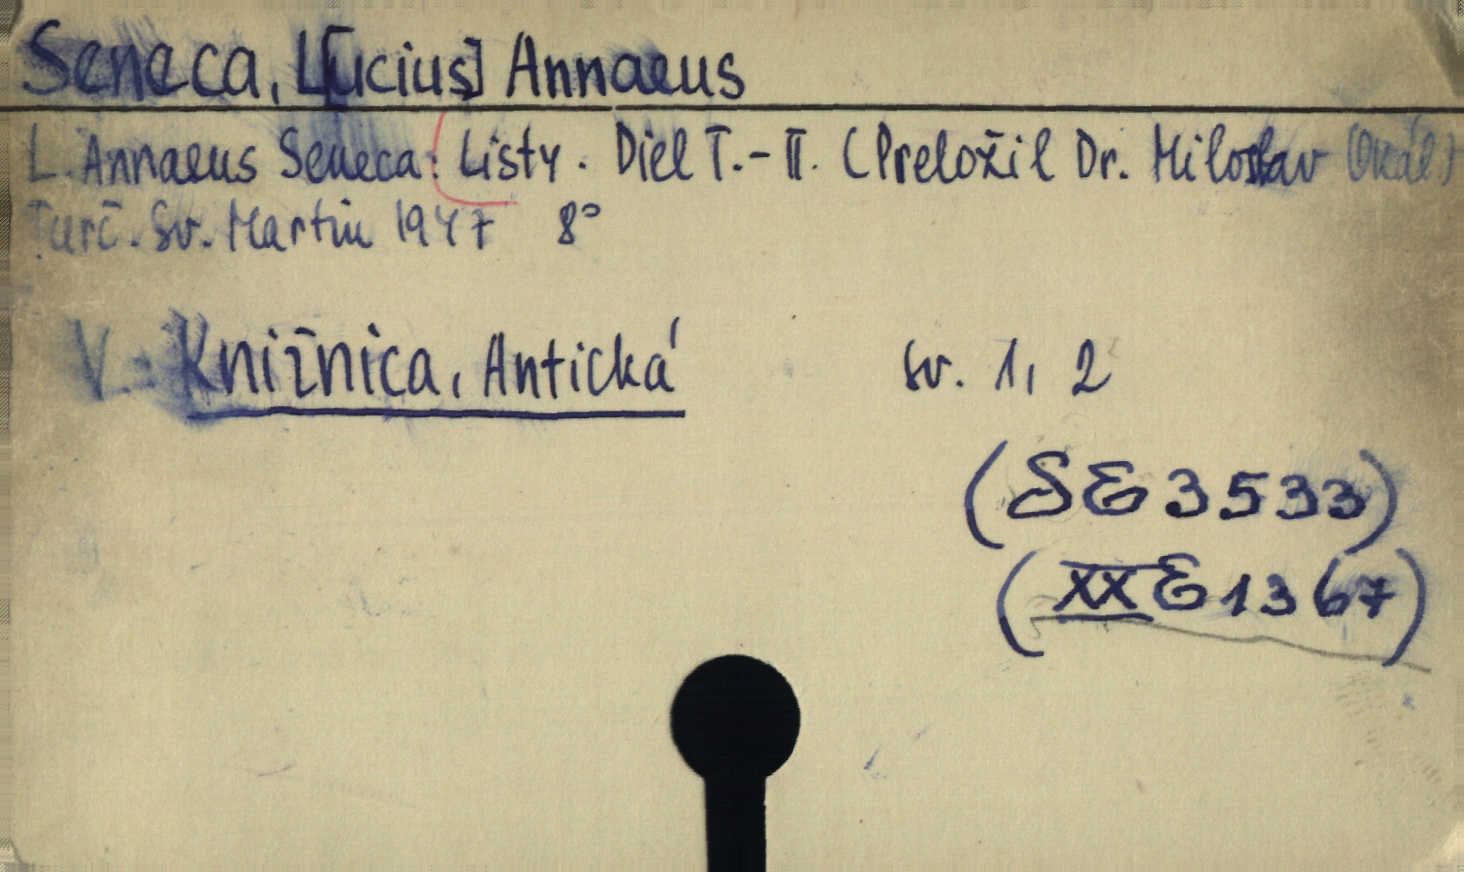 Seneca, L[ucius] Annaeus
L. Annaeus Seneca: Listy. Diel I.-II. (Preložil Dr. Miloslav Okál.)
Turč. Sv. Martin 1947 8°
V: Knižnica, Antická sv. 1, 2
(SE 3533)
(XX E 1367)